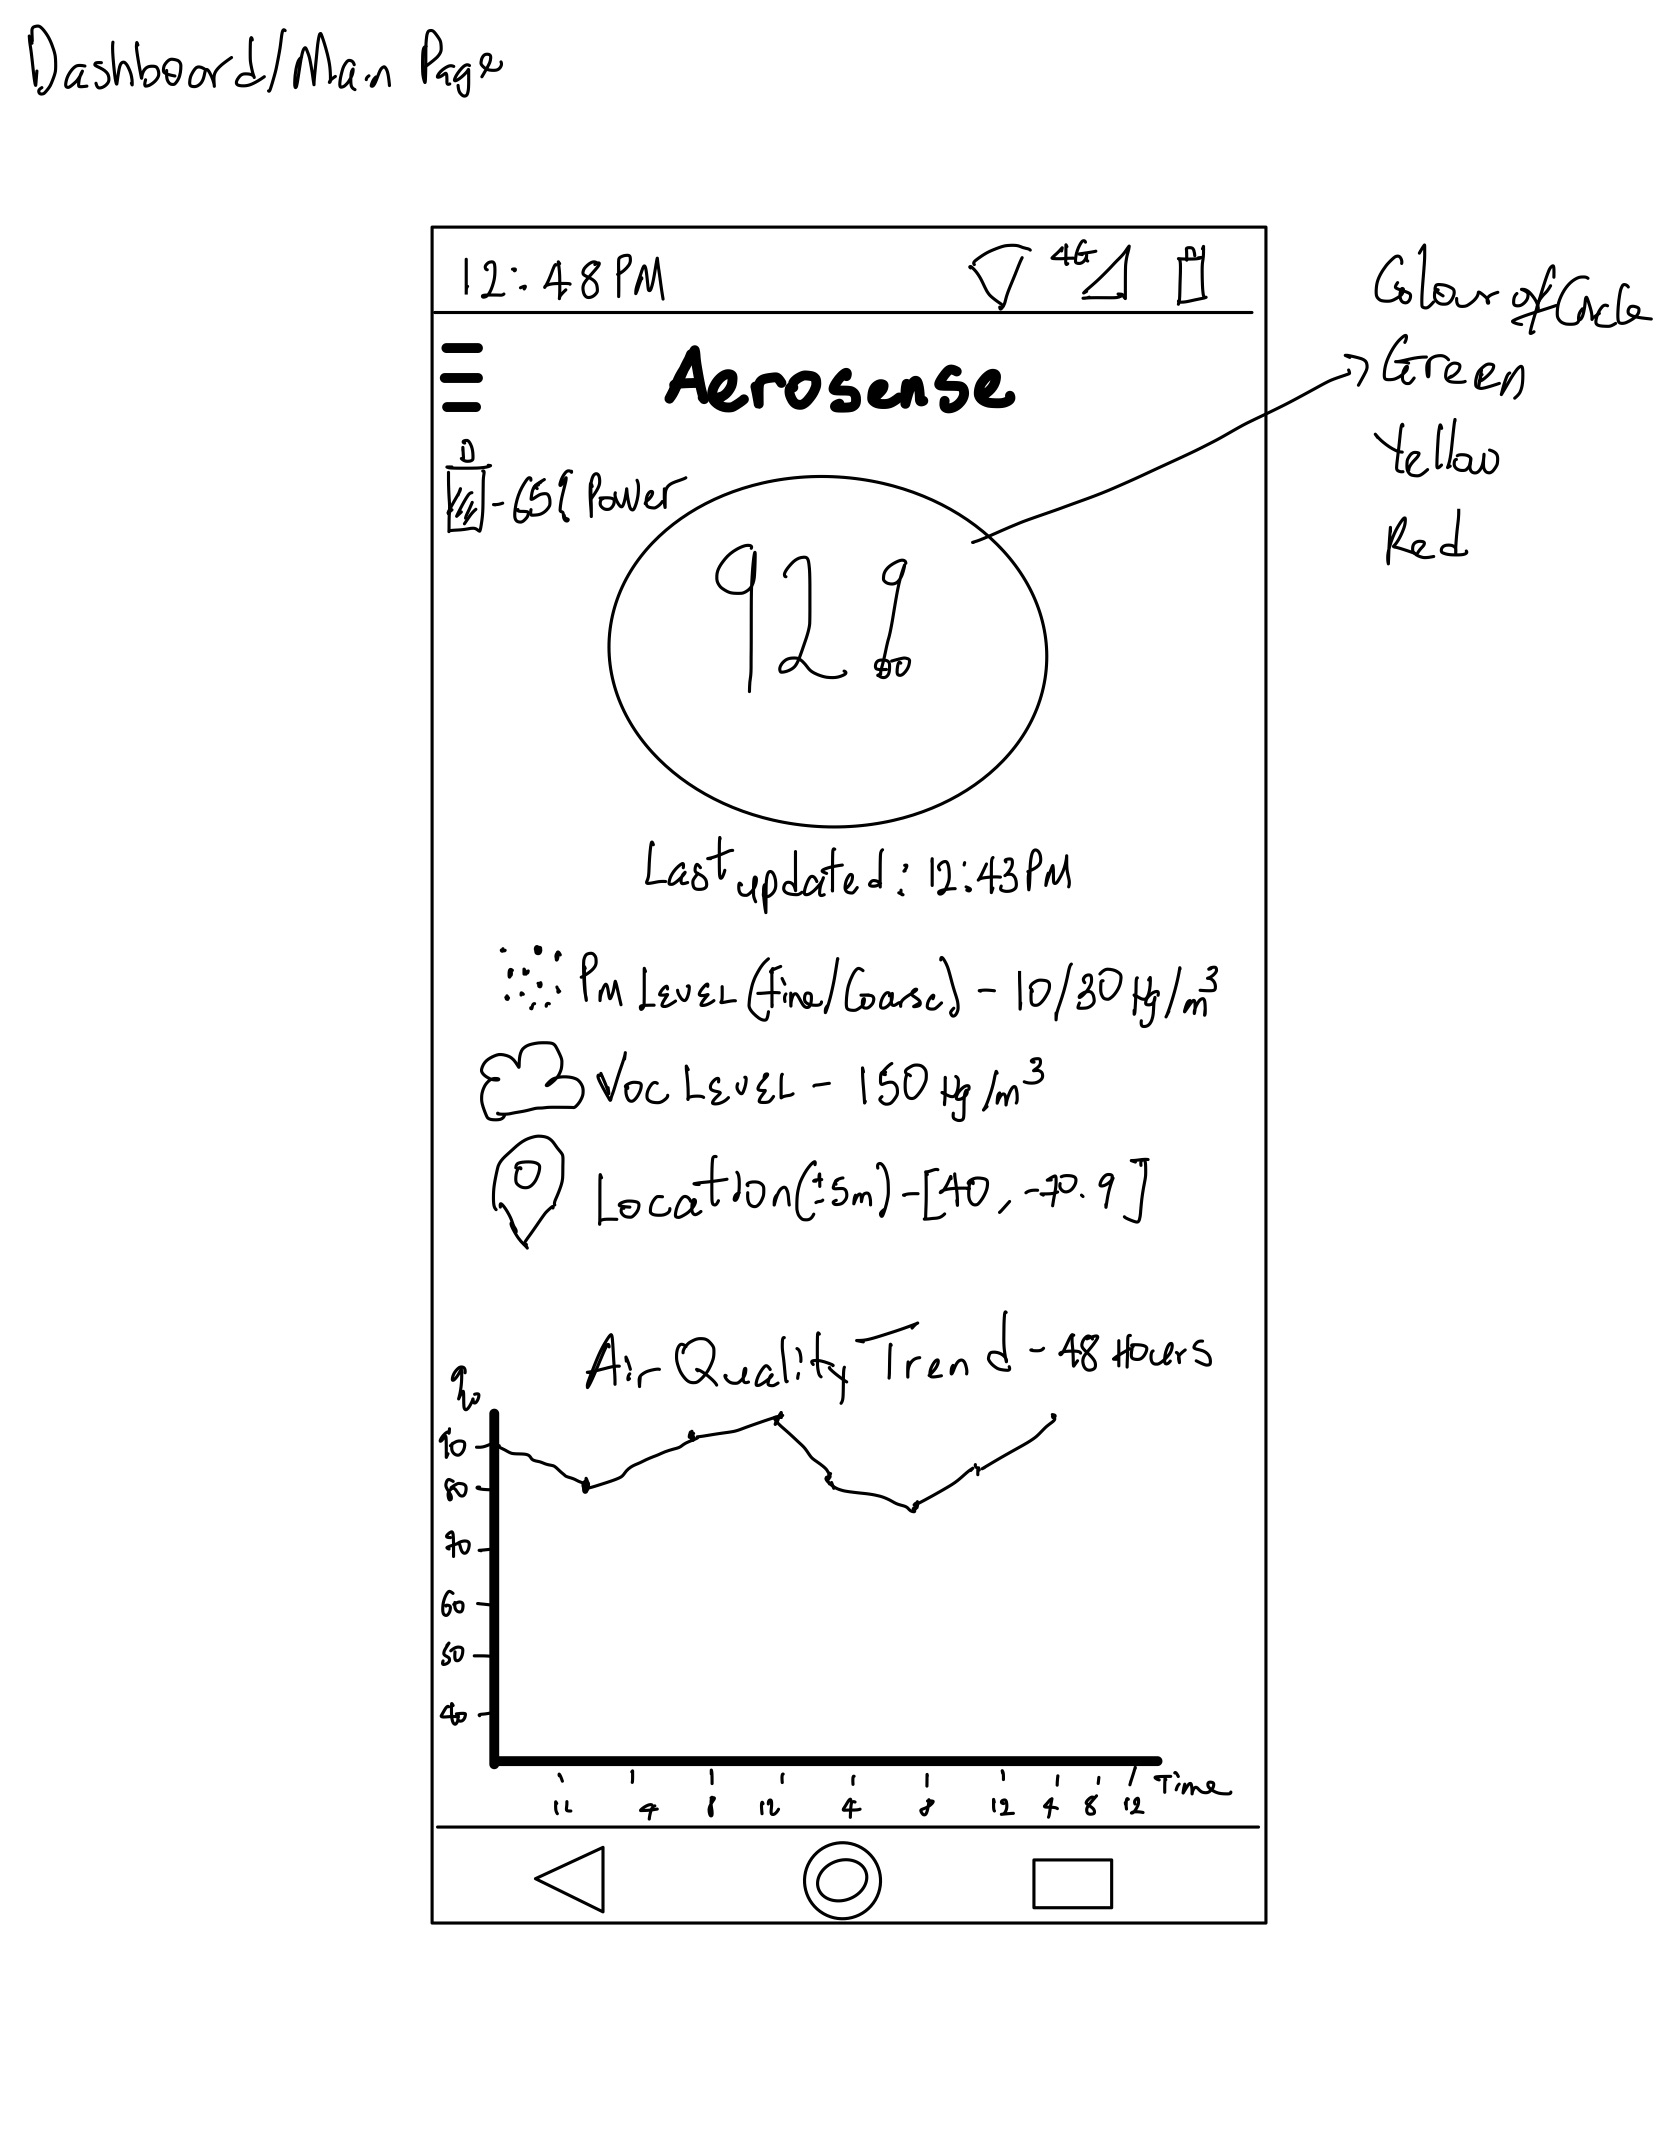 Dashboard/Main Page
12:48PM
4G
Colour of Circle
Green
Yellow
Red
Aerosense
-65% Power
92%
Last updated: 12:43PM
PM LEVEL (Fine/Coarse) - 10/30 µg/m³
VOC LEVEL - 150 µg/m³
Location (±5m) - [40, -70.9]
Air Quality Trend - 48 Hours
%
90
80
70
60
50
40
12 4 8 12 4 8 12 4 8 12 Time